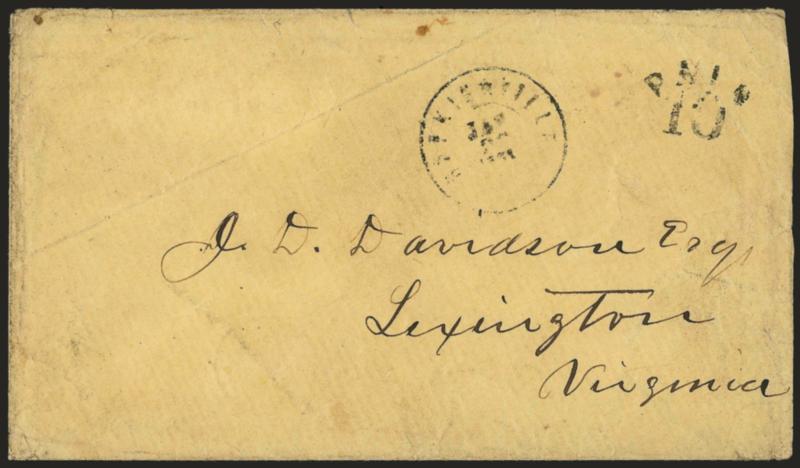 JAN
PAID
10
J. D. Davidson Esq,
Lexington
Virginia